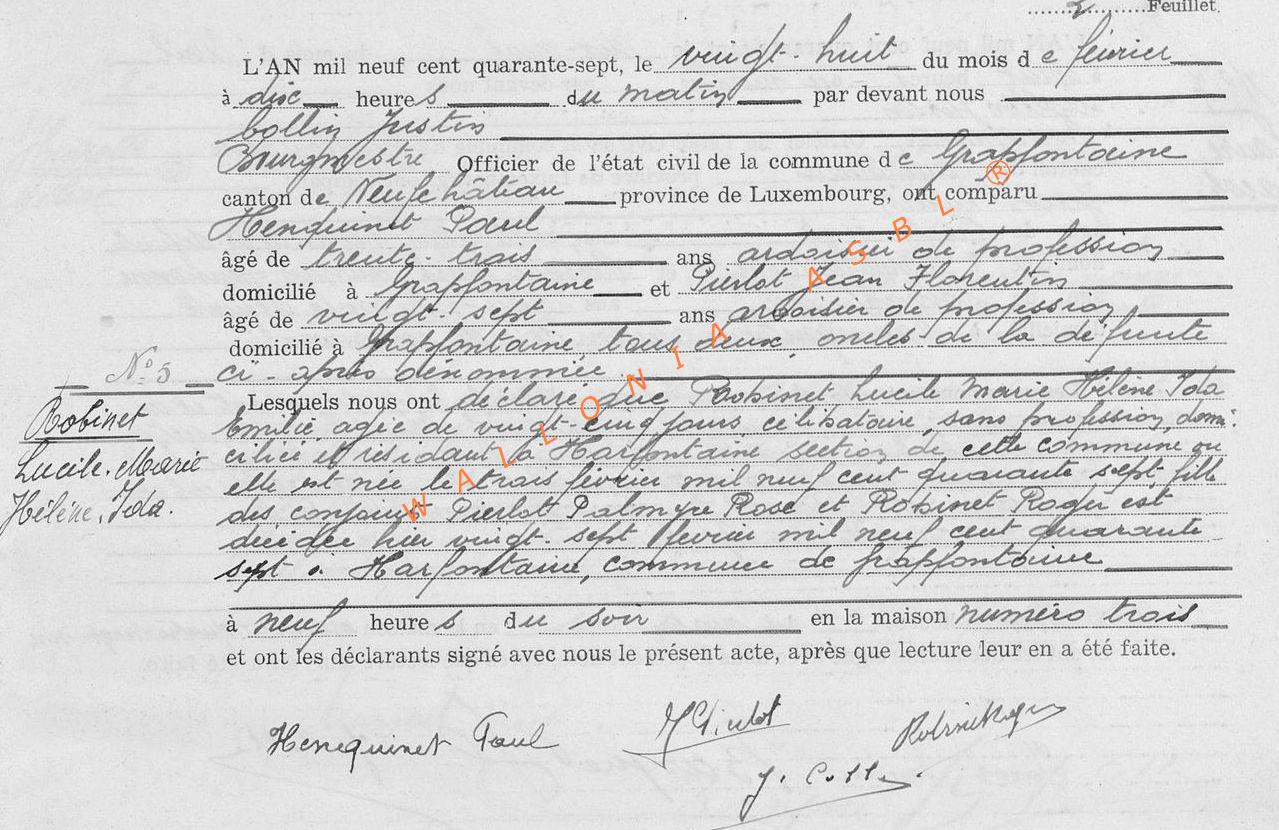 2 Feuillet.
L'AN mil neuf cent quarante-sept, le vingt-huit du mois de février
à dix heures du matin par devant nous
Collin Justin
Bourgmestre Officier de l'état civil de la commune de Grapfontaine
canton de Neufchâteau province de Luxembourg, ont comparu
Henquinet Paul
âgé de trente-trois ans ardoisier de profession
domicilié à Grapfontaine et Pierlot Jean Florentin
âgé de vingt-sept ans ardoisier de profession
domicilié à Grapfontaine, tous deux oncles de la défunte
ci-après dénommée
Lesquels nous ont déclaré que Robinet Lucile Marie Hélène Ida
Emilie, agée de vingt-cinq jours, célibataire, sans profession, domi-
ciliée et résidant à Harfontaine section de cette commune ou
elle est née le trois février mil neuf cent quarante sept, fille
des conjoints Pierlot Palmyre Rose et Robinet Roger est
décédée hier vingt-sept février mil neuf cent quarante
sept à Harfontaine, commune de Grapfontaine
à neuf heures du soir en la maison numéro trois
et ont les déclarants signé avec nous le présent acte, après que lecture leur en a été faite.
N° 3
Robinet
Lucile. Marie
Hélène. Ida.
Henquinet Paul
Pierlot
Robinet Roger
J. Collin
WALLONIA ASBL ®